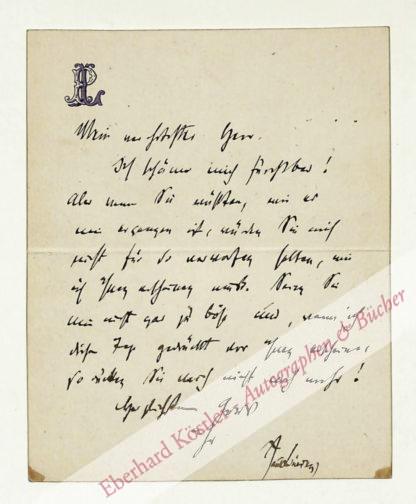 PL
Mein verehrtester Herr.
Ich schäme mich furchtbar!
Aber wenn Sie wüßten, wie es
mir ergangen ist, würden Sie mich
nicht für so verworfen halten, wie
ich Ihnen erscheinen muß. Seien Sie
mir nicht gar zu böse und, wenn ich
dieser Tage gedrückt vor Ihnen erscheine,
so drücken Sie mich nicht noch mehr!
Ihr
Eberhard Köstler Autographen & Bücher